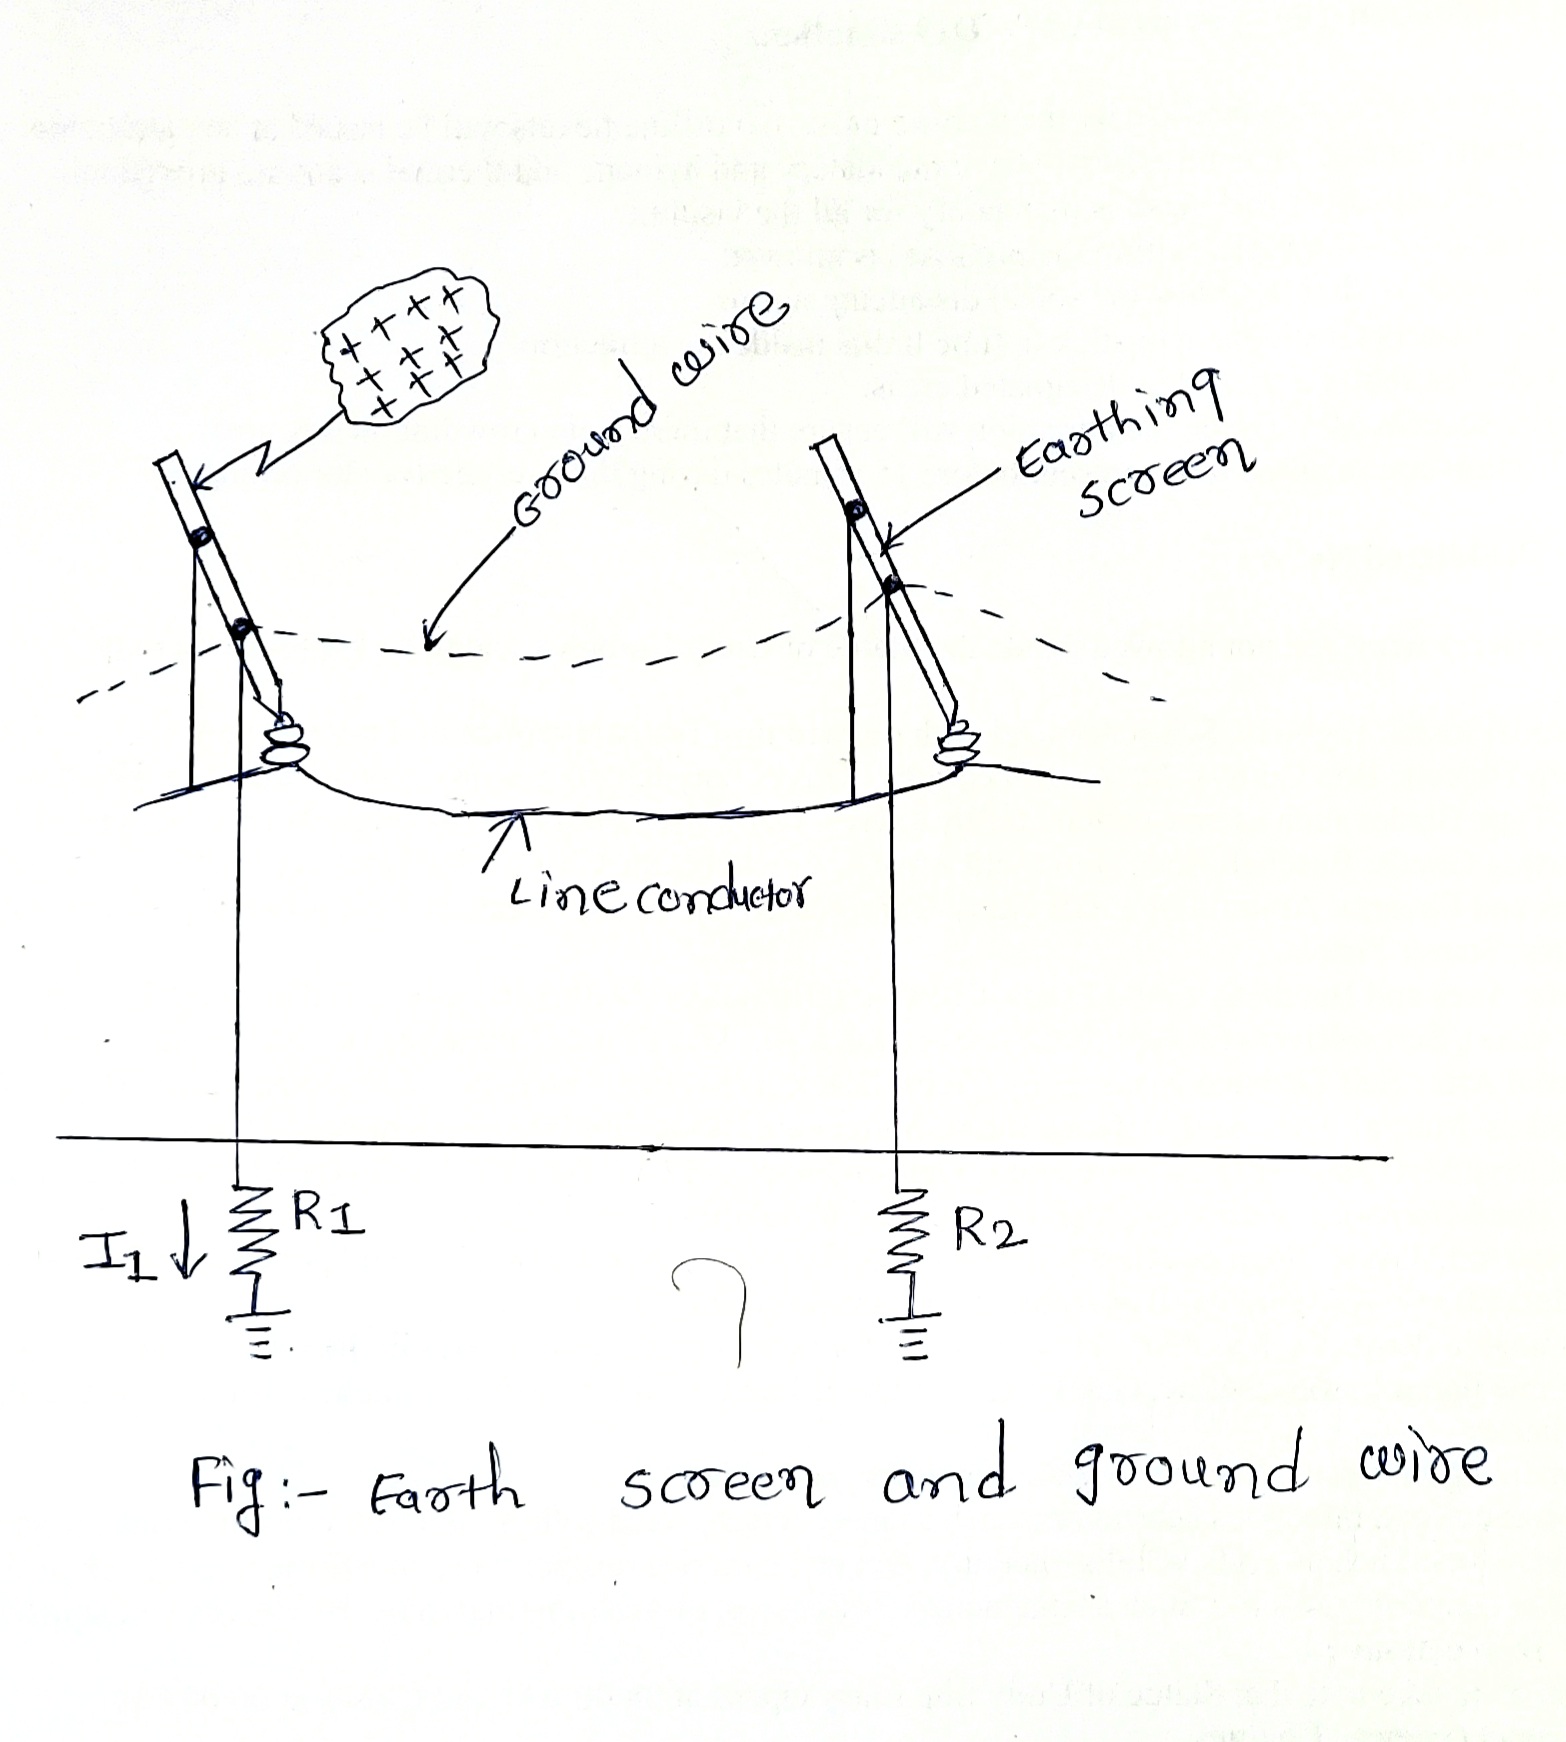 + + + +
+ + +
+ + +
+
Ground wire
Earthing
screen
Line conductor
I1
R1
R2
Fig:- Earth screen and ground wire